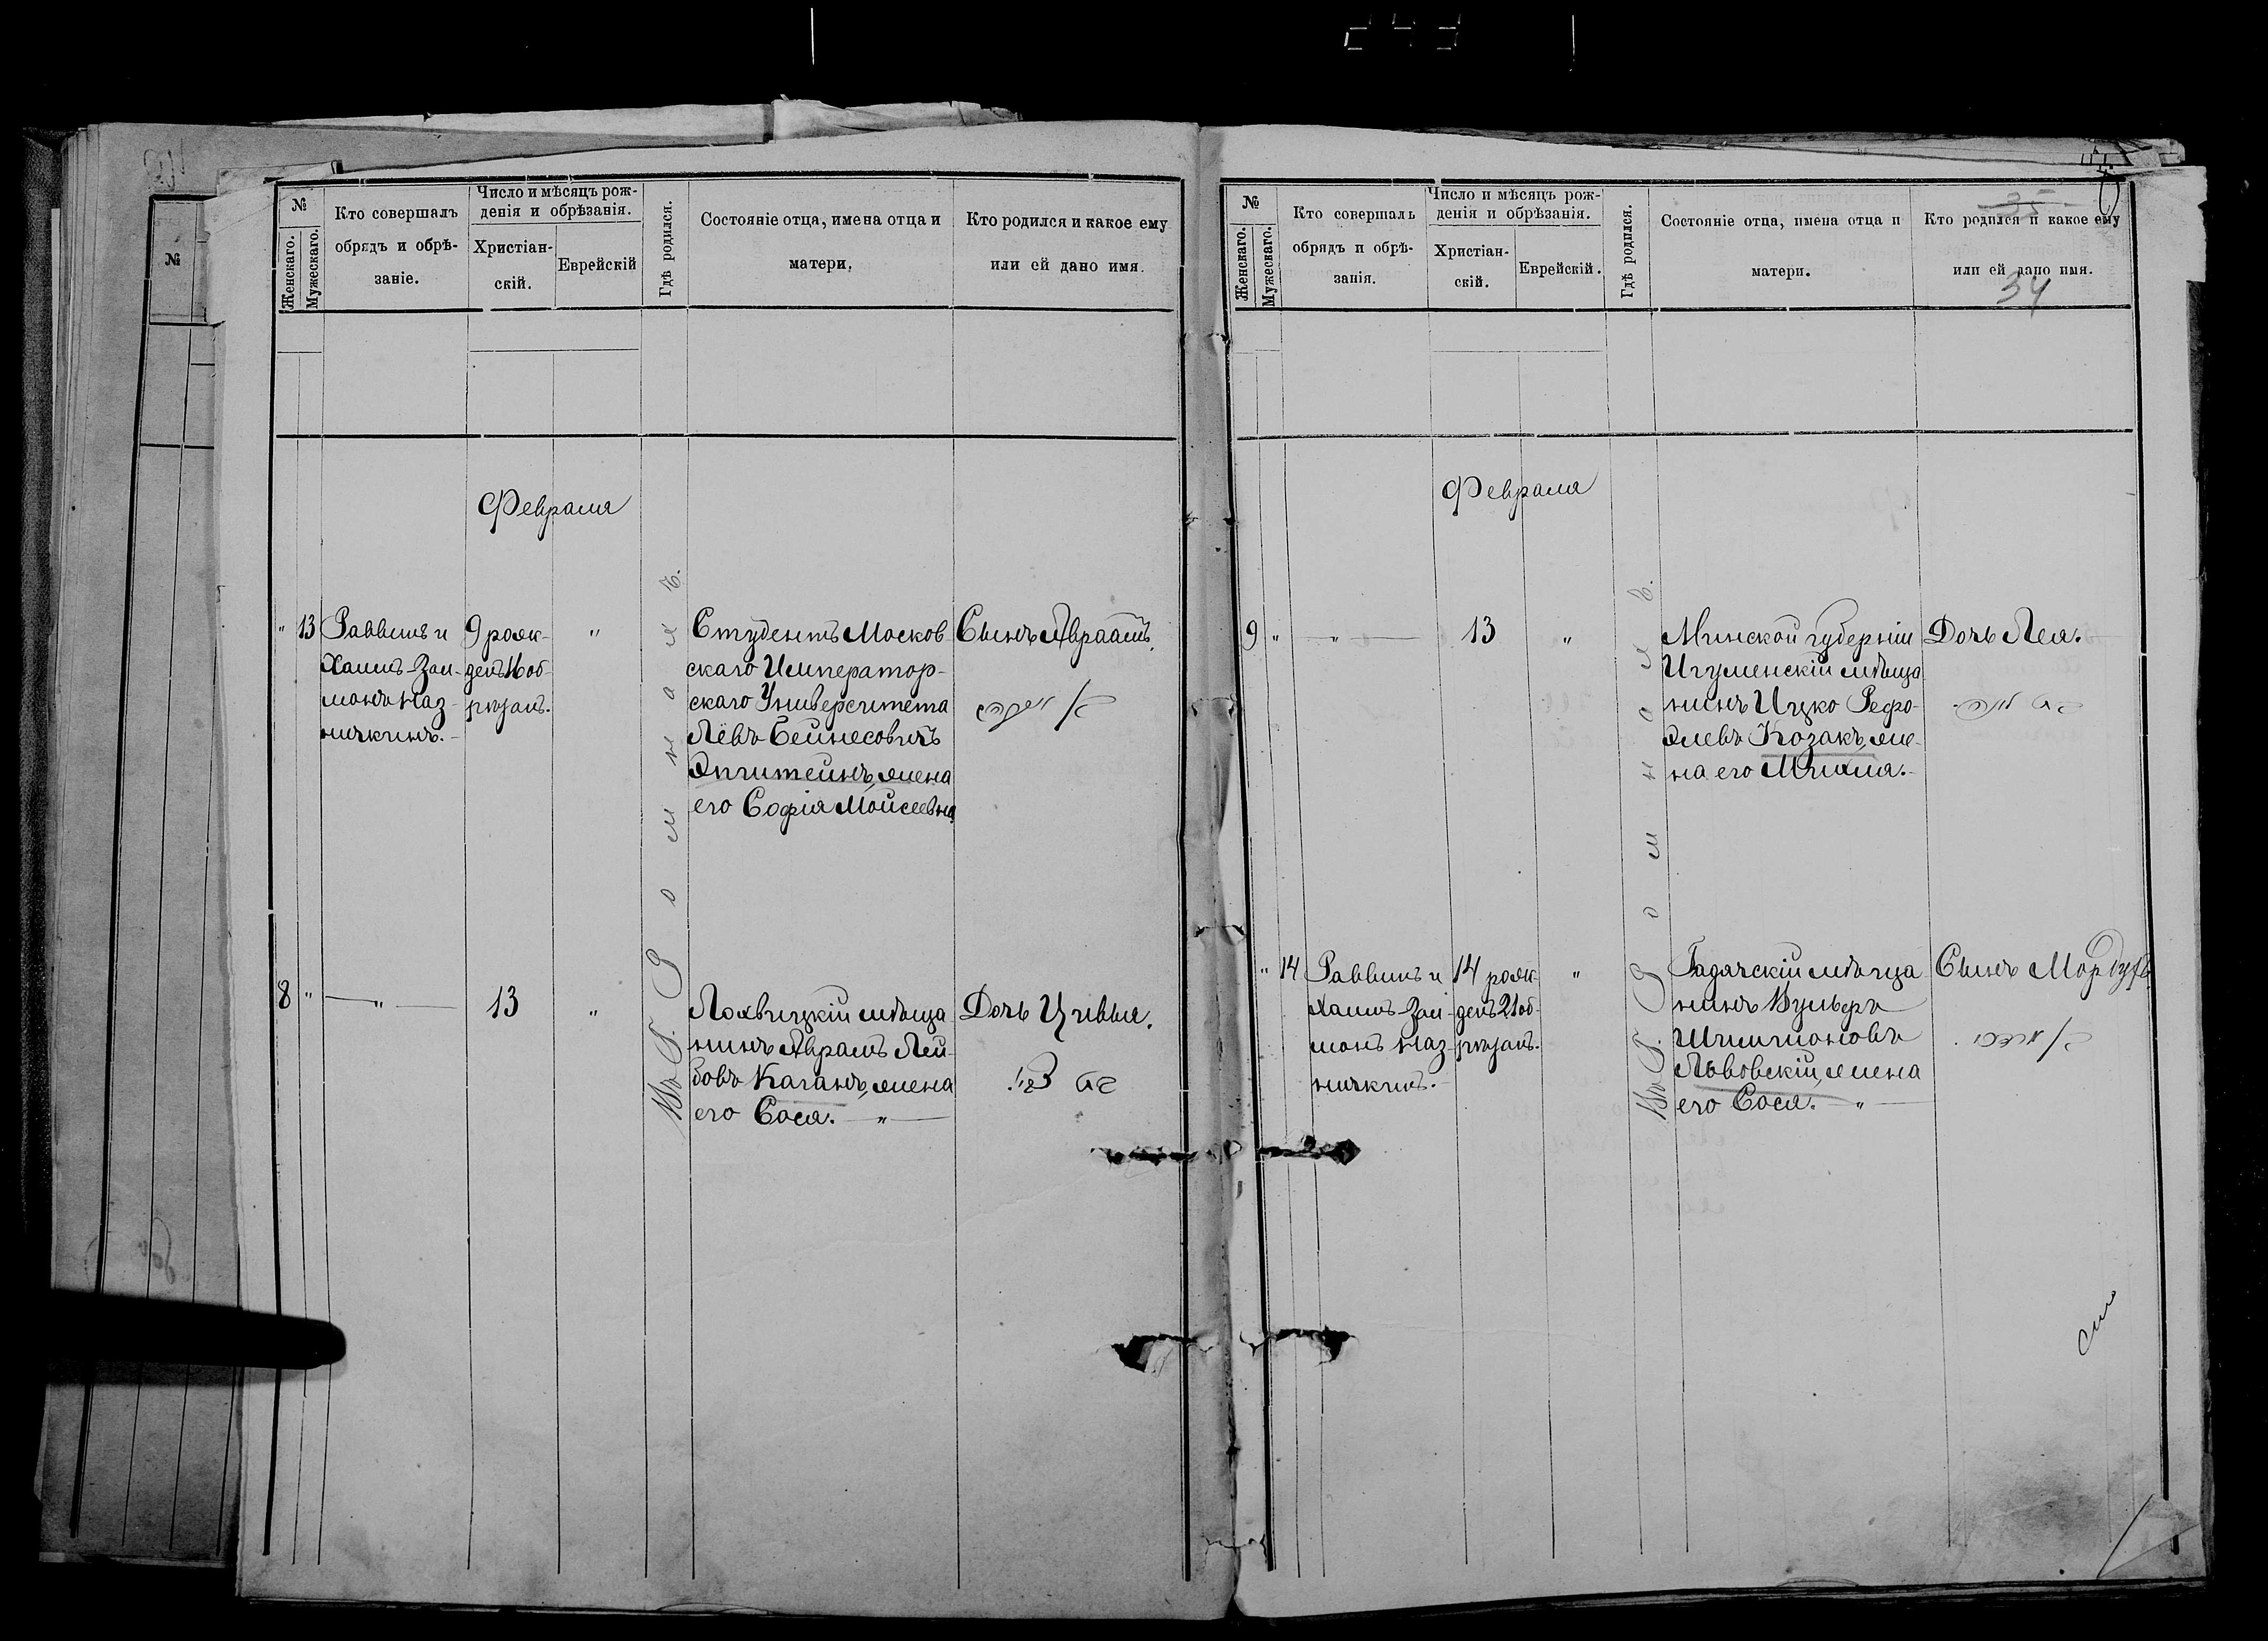 №
Женскаго.
Мужескаго.
Кто совершалъ
обрядъ и обрѣ-
заніе.
Число и мѣсяцъ рож-
денія и обрѣзанія.
Христіан-
скій.
Еврейскій
Гдѣ родился.
Состояніе отца, имена отца и
матери.
Кто родился и какое ему
или ей дано имя.
Февраля
" 13
Раввинъ и
Хаимъ-Зал-
монъ Каз-
нячкинъ.-
9 рожд-
денъ 16 об-
рѣзанъ.
"
Студентъ Москов-
скаго Император-
скаго Университета
Лёвъ Бейнесовичъ
Эпштейнъ, жена
его Софія Мойсеевна
Сынъ Авраамъ.
8 "
— " —
13
"
Лохвицкій мѣща
нинъ Абрамъ Лей-
бовъ Каганъ, жена
его Сося. — " —
Дочь Цивья.
Въ г. Ромнахъ.
№
Женскаго.
Мужескаго.
Кто совершалъ
обрядъ и обрѣ-
занія.
Число и мѣсяцъ рож-
денія и обрѣзанія.
Христіан-
скій.
Еврейскій.
Гдѣ родился.
Состояніе отца, имена отца и
матери.
35
Кто родился и какое ему
или ей дано имя.
34
Февраля
9 "
— " —
13
"
Минской губерніи
Игуменскій мѣща
нинъ Ицко Рефо-
элевъ Козакъ, же-
на его Михля.-
Дочь Лея.
" 14
Раввинъ и
Хаимъ-Зал-
монъ Каз-
нячкинъ.-
14 рож-
денъ 21 об-
рѣзанъ.
"
Гадячскій мѣща-
нинъ Вульфъ
Шлиомовъ
Львовскій, жена
его Сося. — " —
Сынъ Мордухъ
Въ г. Ромнахъ.